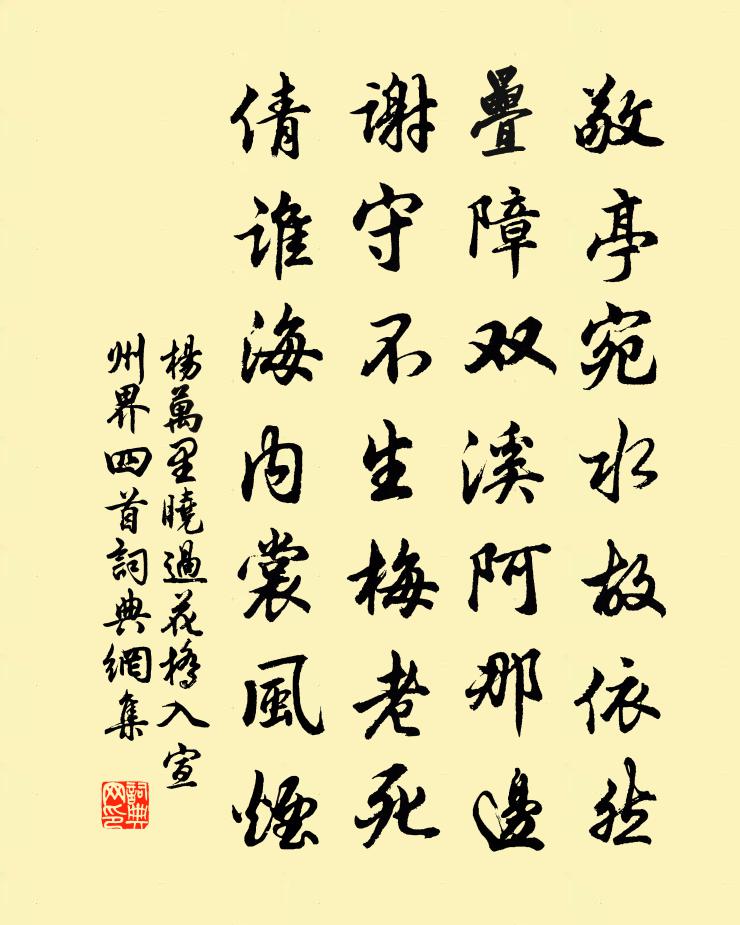 敬亭宛水故依然
疊障双溪阿那邊
謝守不生梅老死
倩誰海内裳風煙
楊萬里曉過花橋入宣
州界四首詞典網集
詞典
网印